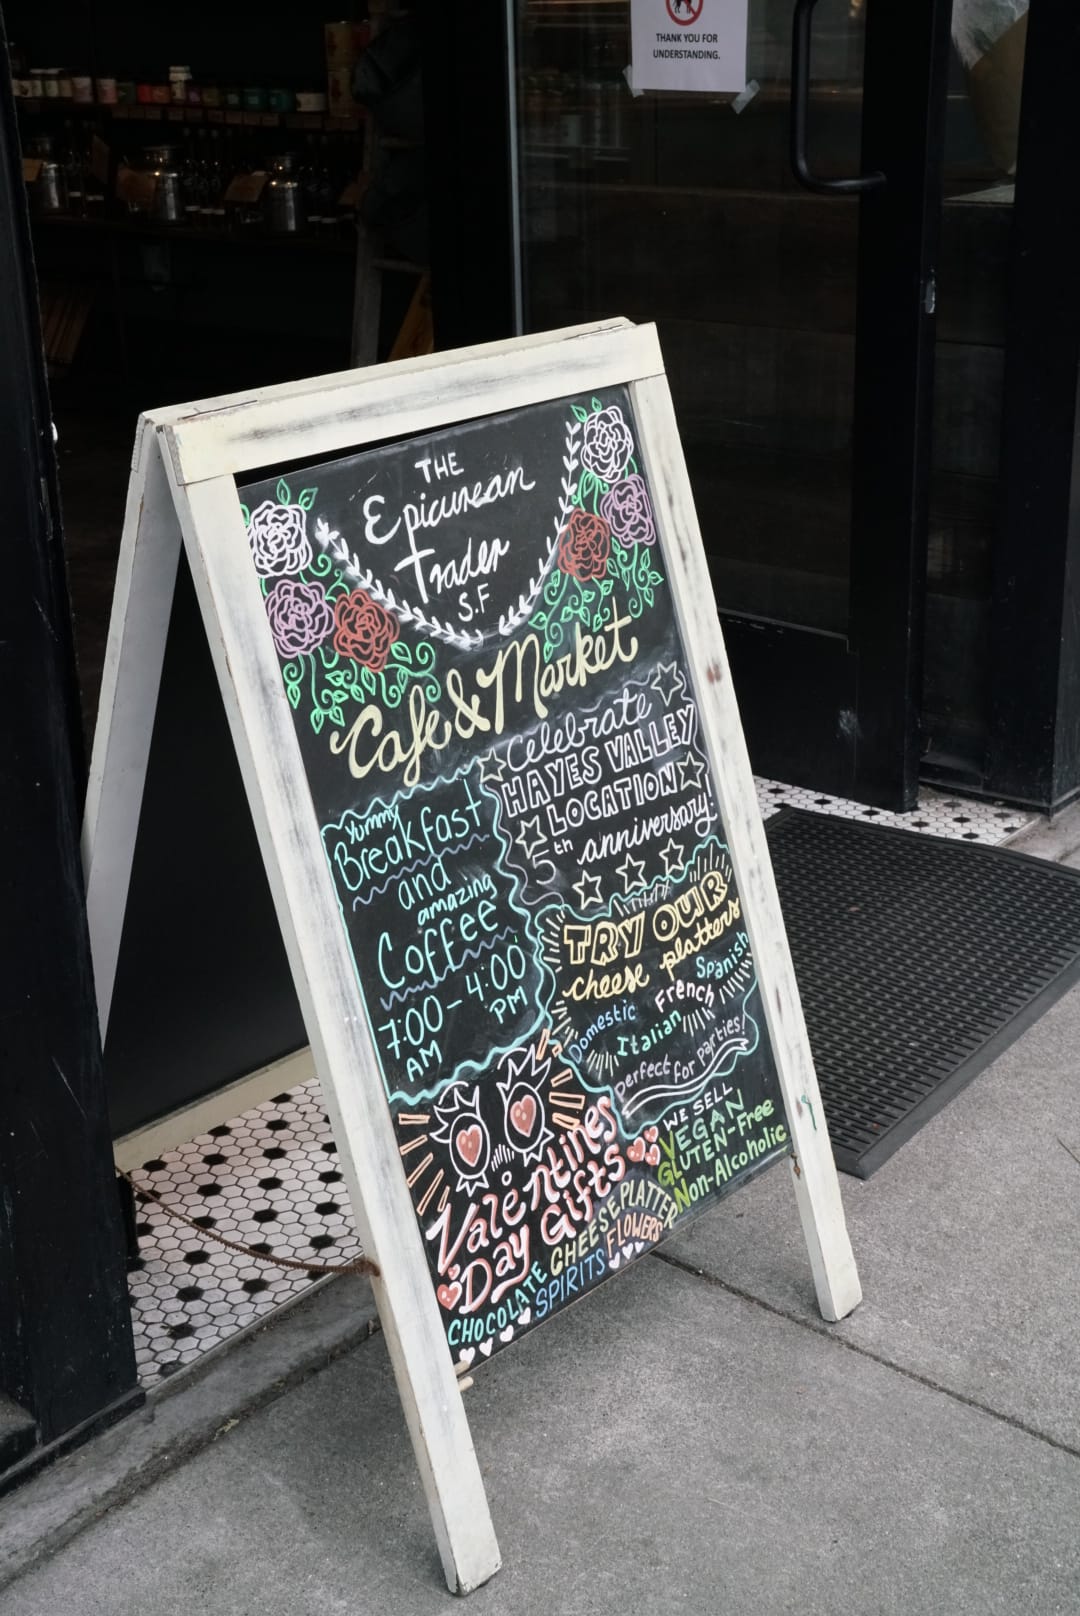 THANK YOU FOR
UNDERSTANDING.
THE
Epicurean
Trader
S.F
Cafe & Market
Celebrate
HAYES VALLEY
LOCATION
5th anniversary!
Yummy
Breakfast
and
amazing
Coffee
7:00 - 4:00
AM PM
TRY OUR
cheese platters
Spanish
French
Domestic
Italian
perfect for parties!
WE SELL
VEGAN
GLUTEN-Free
Non-Alcoholic
Valentines
Day Gifts
CHOCOLATE CHEESE PLATTER
SPIRITS FLOWERS